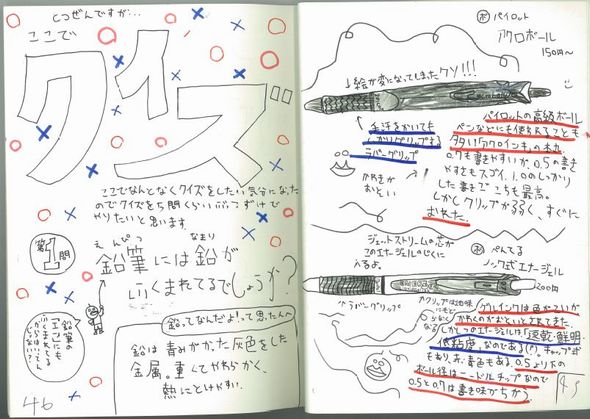 とつぜんですが…
ここで
クイズ
ここでなんとなくクイズをしたい気分になった
のでクイズを5問くらいぶっつずけで
やりたいと思います。
第1問
えんぴつ なまり
鉛筆には鉛が
ふくまれてるでしょうか?
鉛ってなんだよ!って思った人へ
鉛は青みがかった灰色をした
金属。重くてやわらかく、
熱にとけやすい。
46
パイロット
アクロボール
150円〜
↓絵が変になってしまったクソ!!!
手汗をかいても
しっかりグリップする
ラバーグリップ
かわきが
おそい
パイロットの高級ボール
ペンなどにも使われることも
多い「アクロインキ」の本丸
0.7も書きやすいが、0.5の書き
やすさもスゴイ。1.0のしっかり
した書きごこちも最高。
しかしクリップが弱く、すぐに
おれた。
ジェットストリームの芯が
このエナージェルのじくに
入るよ。
ぺんてる
ノック式エナージェル
200円
↑ラバーグリップ
ゲルインクは色がこいが
かわくのがおそいとされてきた。
しかしこのエナージェルは「速乾・鮮明・
低粘度」なのである(?)。キャップ式
もあり、赤・青色もある。0.5より下の
ボール径はニードルチップなので
0.5と0.7は書き味がちがう。
45